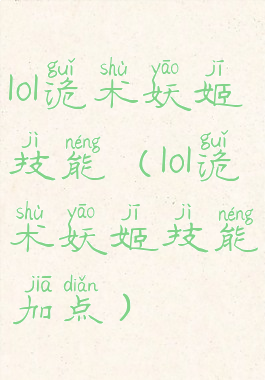 guǐ shù yāo jī
lol诡术妖姬
jì néng guǐ
技能（lol诡
shù yāo jī jì néng
术妖姬技能
jiā diǎn
加点）